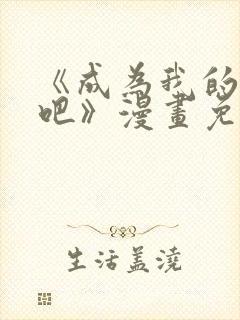 《成为我的
吧》漫畫免
生活盖澆